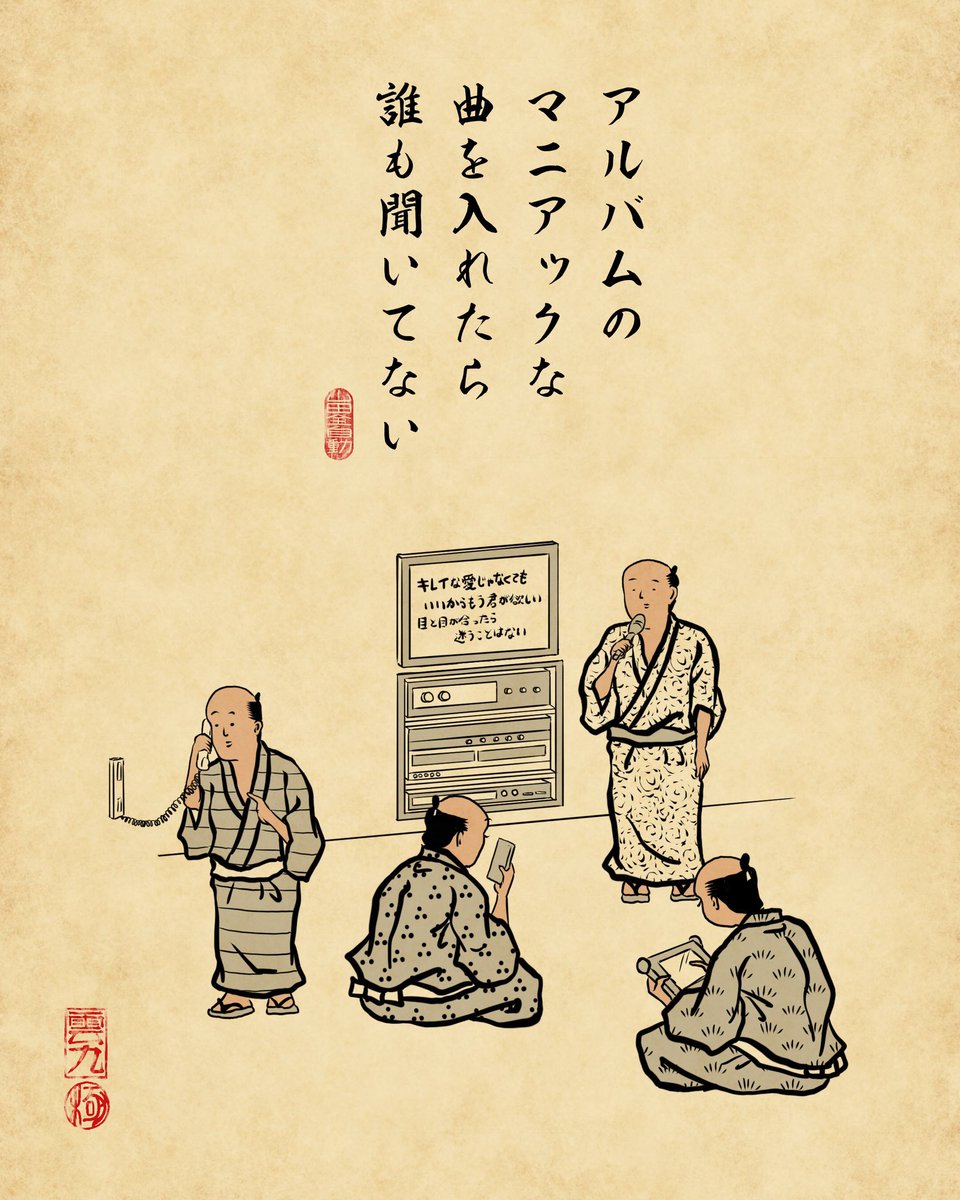 アルバムの
マニアックな
曲を入れたら
誰も聞いてない
キレイな愛じゃなくても
いいからもう君が欲しい
目と目が合ったら
迷うことはない